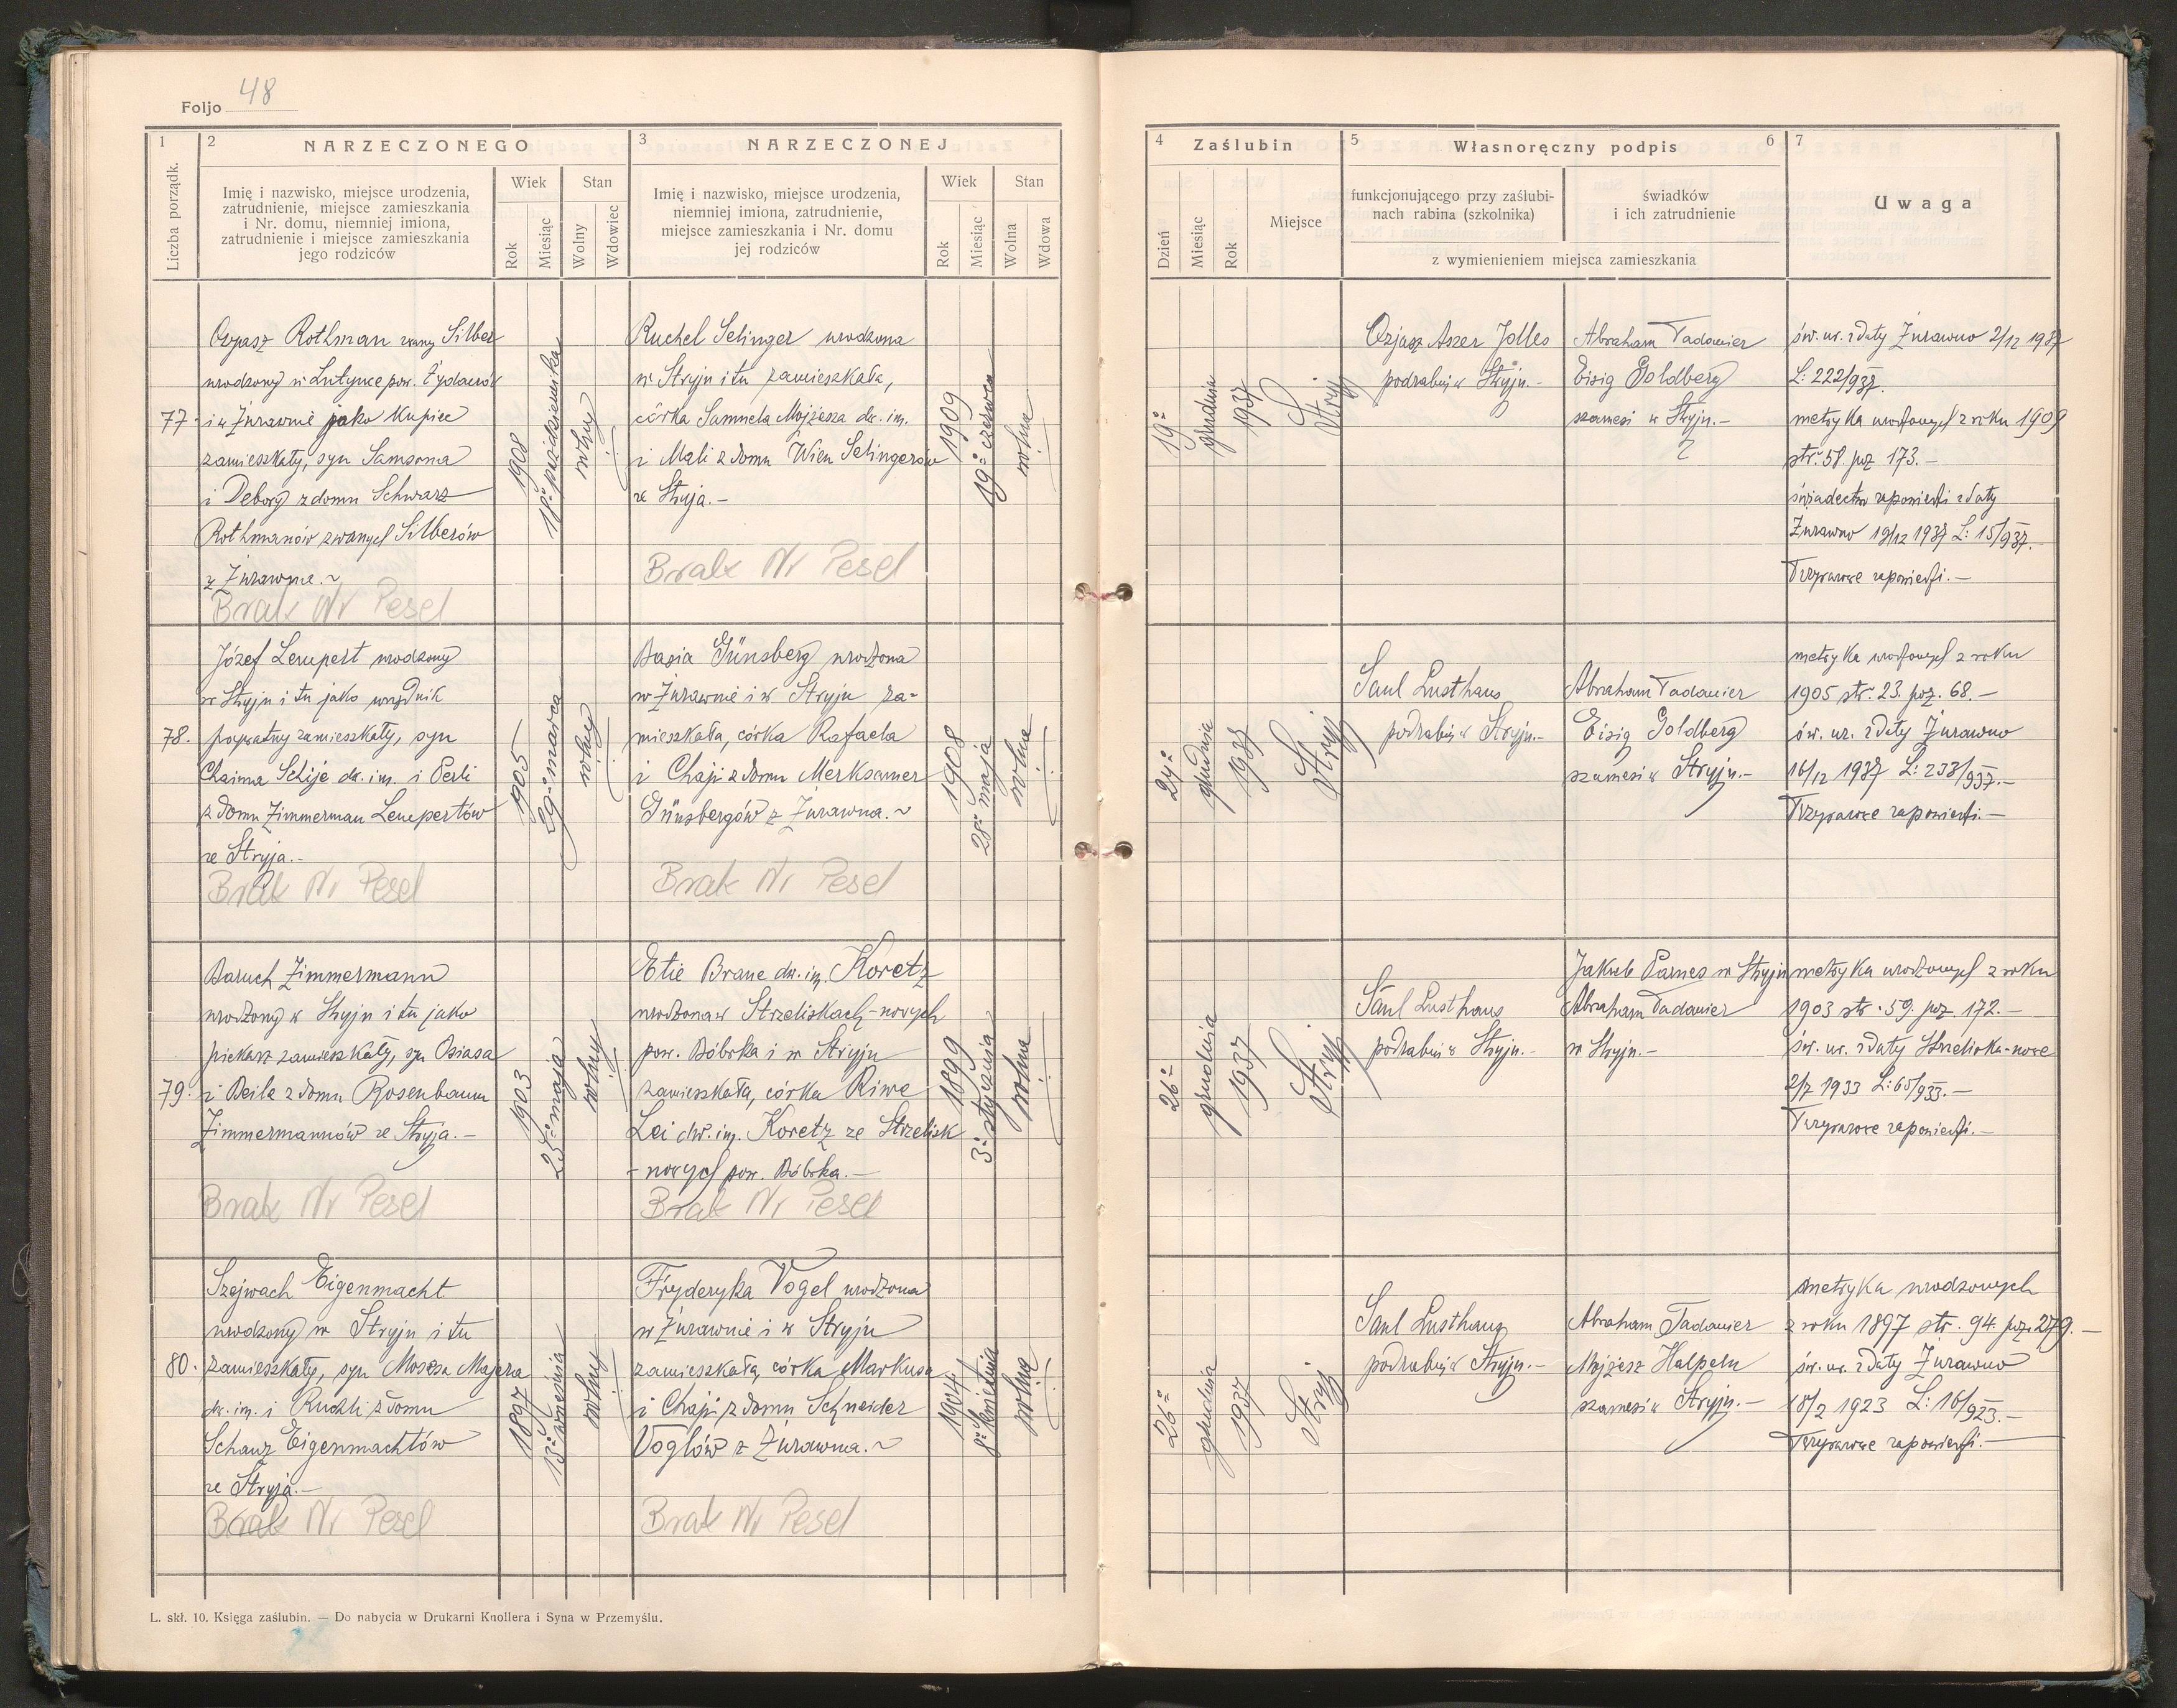 Foljo 48
1
2 NARZECZONEGO
3 NARZECZONEJ
Liczba porządk.
Imię i nazwisko, miejsce urodzenia,
zatrudnienie, miejsce zamieszkania
i Nr. domu, niemniej imiona,
zatrudnienie i miejsce zamieszkania
jego rodziców
Wiek
Rok
Miesiąc
Stan
Wolny
Wdowiec
Imię i nazwisko, miejsce urodzenia,
niemniej imiona, zatrudnienie,
miejsce zamieszkania i Nr. domu
jej rodziców
Wiek
Rok
Miesiąc
Stan
Wolna
Wdowa
4 Zaślubin
Dzień
Miesiąc
Rok
Miejsce
5 Własnoręczny podpis 6
funkcjonującego przy zaślubi-
nach rabina (szkolnika)
świadków
i ich zatrudnienie
z wymienieniem miejsca zamieszkania
7
Uwaga
77
Rothman zwany Silber
urodzony w Lutynce pow. Żydaczów
i w Żurawnie jako kupiec
zamieszkały, syn Samsona
i Debory z domu Schwarz
Rothmanów zwanych Silberów
z Żurawna.~
Brak Nr Pesel
1908
18º października
wolny
Ruchel Selinger urodzona
w Stryju i tu zamieszkała,
córka Samuela Mojżesza dw. im.
i Mali z domu Wien Selingerów
ze Stryja.-
Brak Nr Pesel
1909
19º czerwca
wolna
19º
grudnia
1937
Stryj
Ozjasz Aszer Jolles
podrabin w Stryju.-
Abraham Tadanier
Eisig Goldberg
szamesi w Stryju.-
św. ur. z daty Żurawno 2/12 1937
L: 222/937.
metryka urodzonych z roku 1909
str. 58. poz 173.-
świadectwo zapowiedzi z daty
Żurawno 19/12 1937 L: 15/937.
Trzykrotne zapowiedzi.-
78.
Józef Lempert urodzony
w Stryju i tu jako urzędnik
prywatny zamieszkały, syn
Chaima Schije dw. im. i Perli
z domu Zimmerman Lempertów
ze Stryja.-
Brak Nr Pesel
1905
29º marca
wolny
Basia Günsberg urodzona
w Żurawnie i w Stryju za-
mieszkała, córka Rafaela
i Chaji z domu Merksamer
Günsbergów z Żurawna.~
Brak Nr Pesel
1908
28º maja
wolna
24º
grudnia
1937
Stryj
Saul Lusthaus
podrabin w Stryju.-
Abraham Tadanier
Eisig Goldberg
szamesi w Stryju.-
metryka urodzonych z roku
1905 str. 23. poz. 68.-
św. ur. z daty Żurawno
16/12 1937 L: 233/937.-
Trzykrotne zapowiedzi.-
79.
Baruch Zimmermann
urodzony w Stryju i tu jako
piekarz zamieszkały, syn Osiasa
i Beila z domu Rosenbaum
Zimmermannów ze Stryja.-
Brak Nr Pesel
1903
25º maja
wolny
Etie Brane dw. im. Koretz
urodzona w Strzeliskach-nowych
pow. Bóbrka i w Stryju
zamieszkała, córka Riwe
Lei dw. im. Koretz ze Strzelisk
-nowych pow. Bóbrka.-
Brak Nr Pesel
1899
3º stycznia
wolna
26º
grudnia
1937
Stryj
Saul Lusthaus
podrabin w Stryju.-
Jakub Parnes w Stryju
Abraham Tadanier
w Stryju.-
metryka urodzonych z roku
1903 str. 59. poz. 172.-
św. ur. z daty Strzeliska-nowe
2/7 1933 L: 65/933.-
Trzykrotne zapowiedzi.-
80.
Szejwach Eigenmacht
urodzony w Stryju i tu
zamieszkały, syn Mosesa Majera
dw. im. i Ruchli z domu
Schanz Eigenmachtów
ze Stryja.-
Brak Nr Pesel
1897
13º września
wolny
Fryderyka Vogel urodzona
w Żurawnie i w Stryju
zamieszkała, córka Markusa
i Chaji z domu Schneider
Voglów z Żurawna.~
Brak Nr Pesel
1904
8º kwietnia
wolna
26º
grudnia
1937
Stryj
Saul Lusthaus
podrabin w Stryju.-
Abraham Tadanier
Mojżesz Halpern
szamesi w Stryju.-
metryka urodzonych
z roku 1897 str. 94. poz. 279.-
św. ur. z daty Żurawno
18/2 1923 L: 16/923.-
Trzykrotne zapowiedzi.-
L. skł. 10. Księga zaślubin. — Do nabycia w Drukarni Knollera i Syna w Przemyślu.